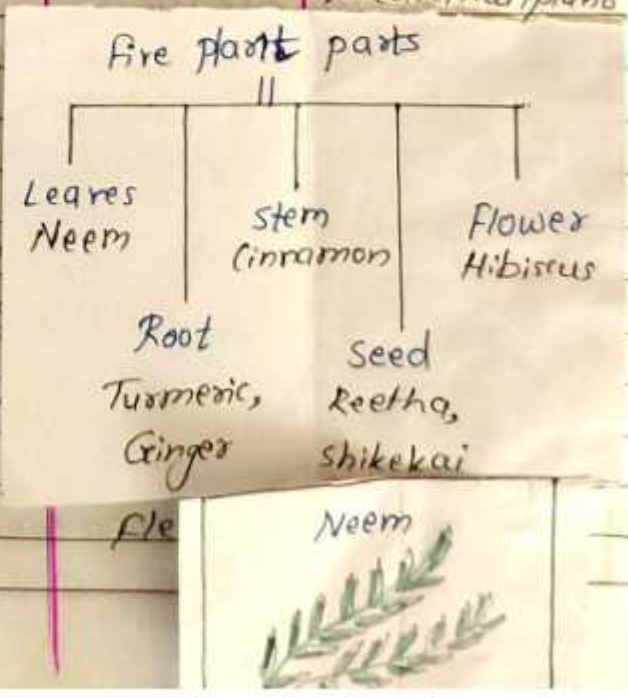 five plant parts
Leaves
Neem
Root
Turmeric,
Ginger
Stem
Cinnamon
Seed
Reetha,
Shikekai
Flower
Hibiscus
Neem